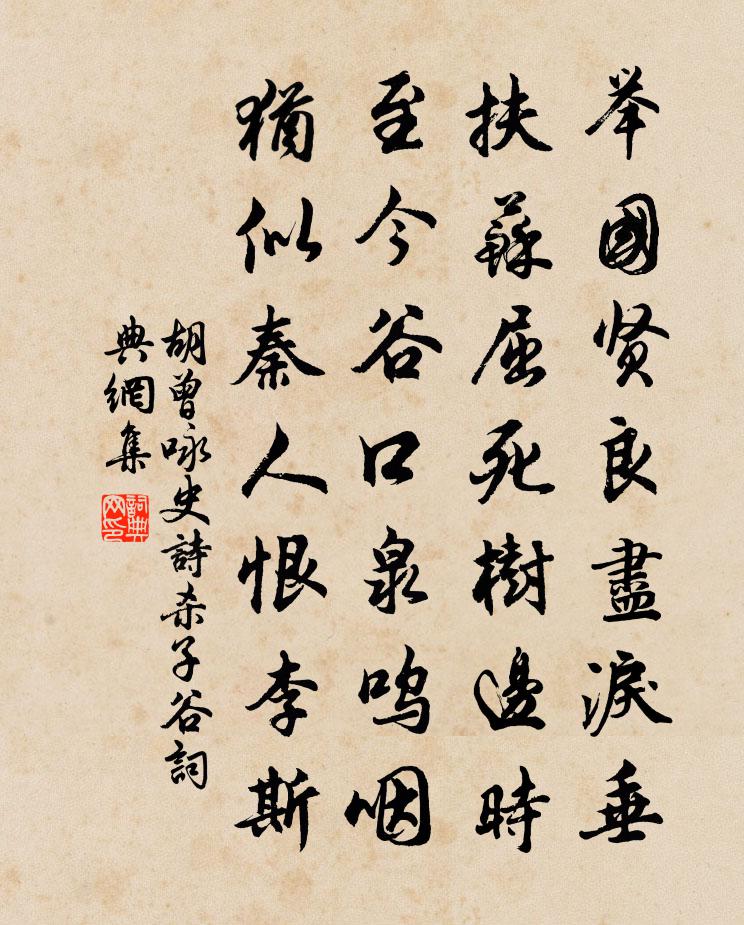 举國贤良盡淚垂
扶蘇屈死樹邊時
至今谷口泉鸣咽
猶似秦人恨李斯
胡曾咏史詩杀子谷詞
典網集
詞典
网印